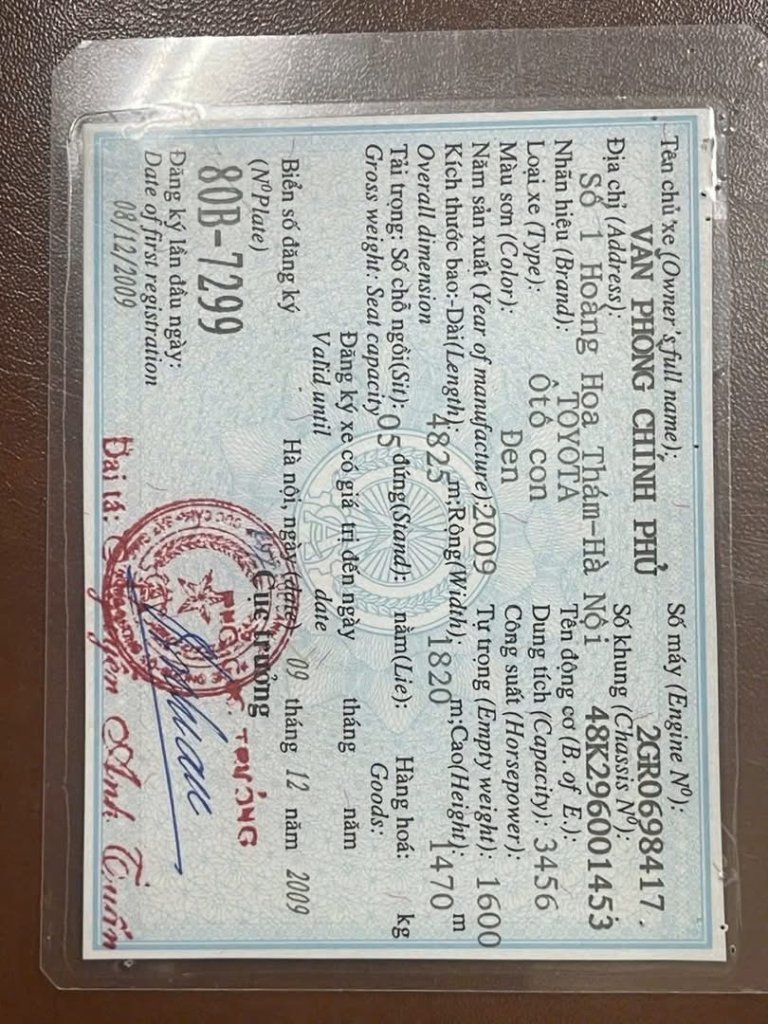 Tên chủ xe (Owner's full name):
VĂN PHÒNG CHÍNH PHỦ
Số máy (Engine Nº):
2GR0698417.
Địa chỉ (Address):
Số 1 Hoàng Hoa Thám-Hà Nội
Số khung (Chassis Nº):
48K296001453
Nhãn hiệu (Brand): TOYOTA
Tên động cơ (B. of E.):
Loại xe (Type): Ôtô con
Dung tích (Capacity): 3456
Màu sơn (Color): Đen
Công suất (Horsepower):
Năm sản xuất (Year of manufacture) 2009
Tự trọng (Empty weight): 1600
Kích thước bao:-Dài(Length): 4825 m;Rộng(Width): 1820 m;Cao(Height): 1470 m
Overall dimension
Tải trọng: Số chỗ ngồi(Sit): 05 đứng(Stand): nằm(Lie): Hàng hoá: kg
Gross weight: Seat capacity Goods:
Đăng ký xe có giá trị đến ngày tháng năm
Valid until date
Biển số đăng ký
(NºPlate)
80B-7299
Hà nội, ngày (date) 09 tháng 12 năm 2009
Cục trưởng
TRƯỞNG
Đăng ký lần đầu ngày:
Date of first registration
08/12/2009
Đại tá: Nguyễn Anh Tuấn